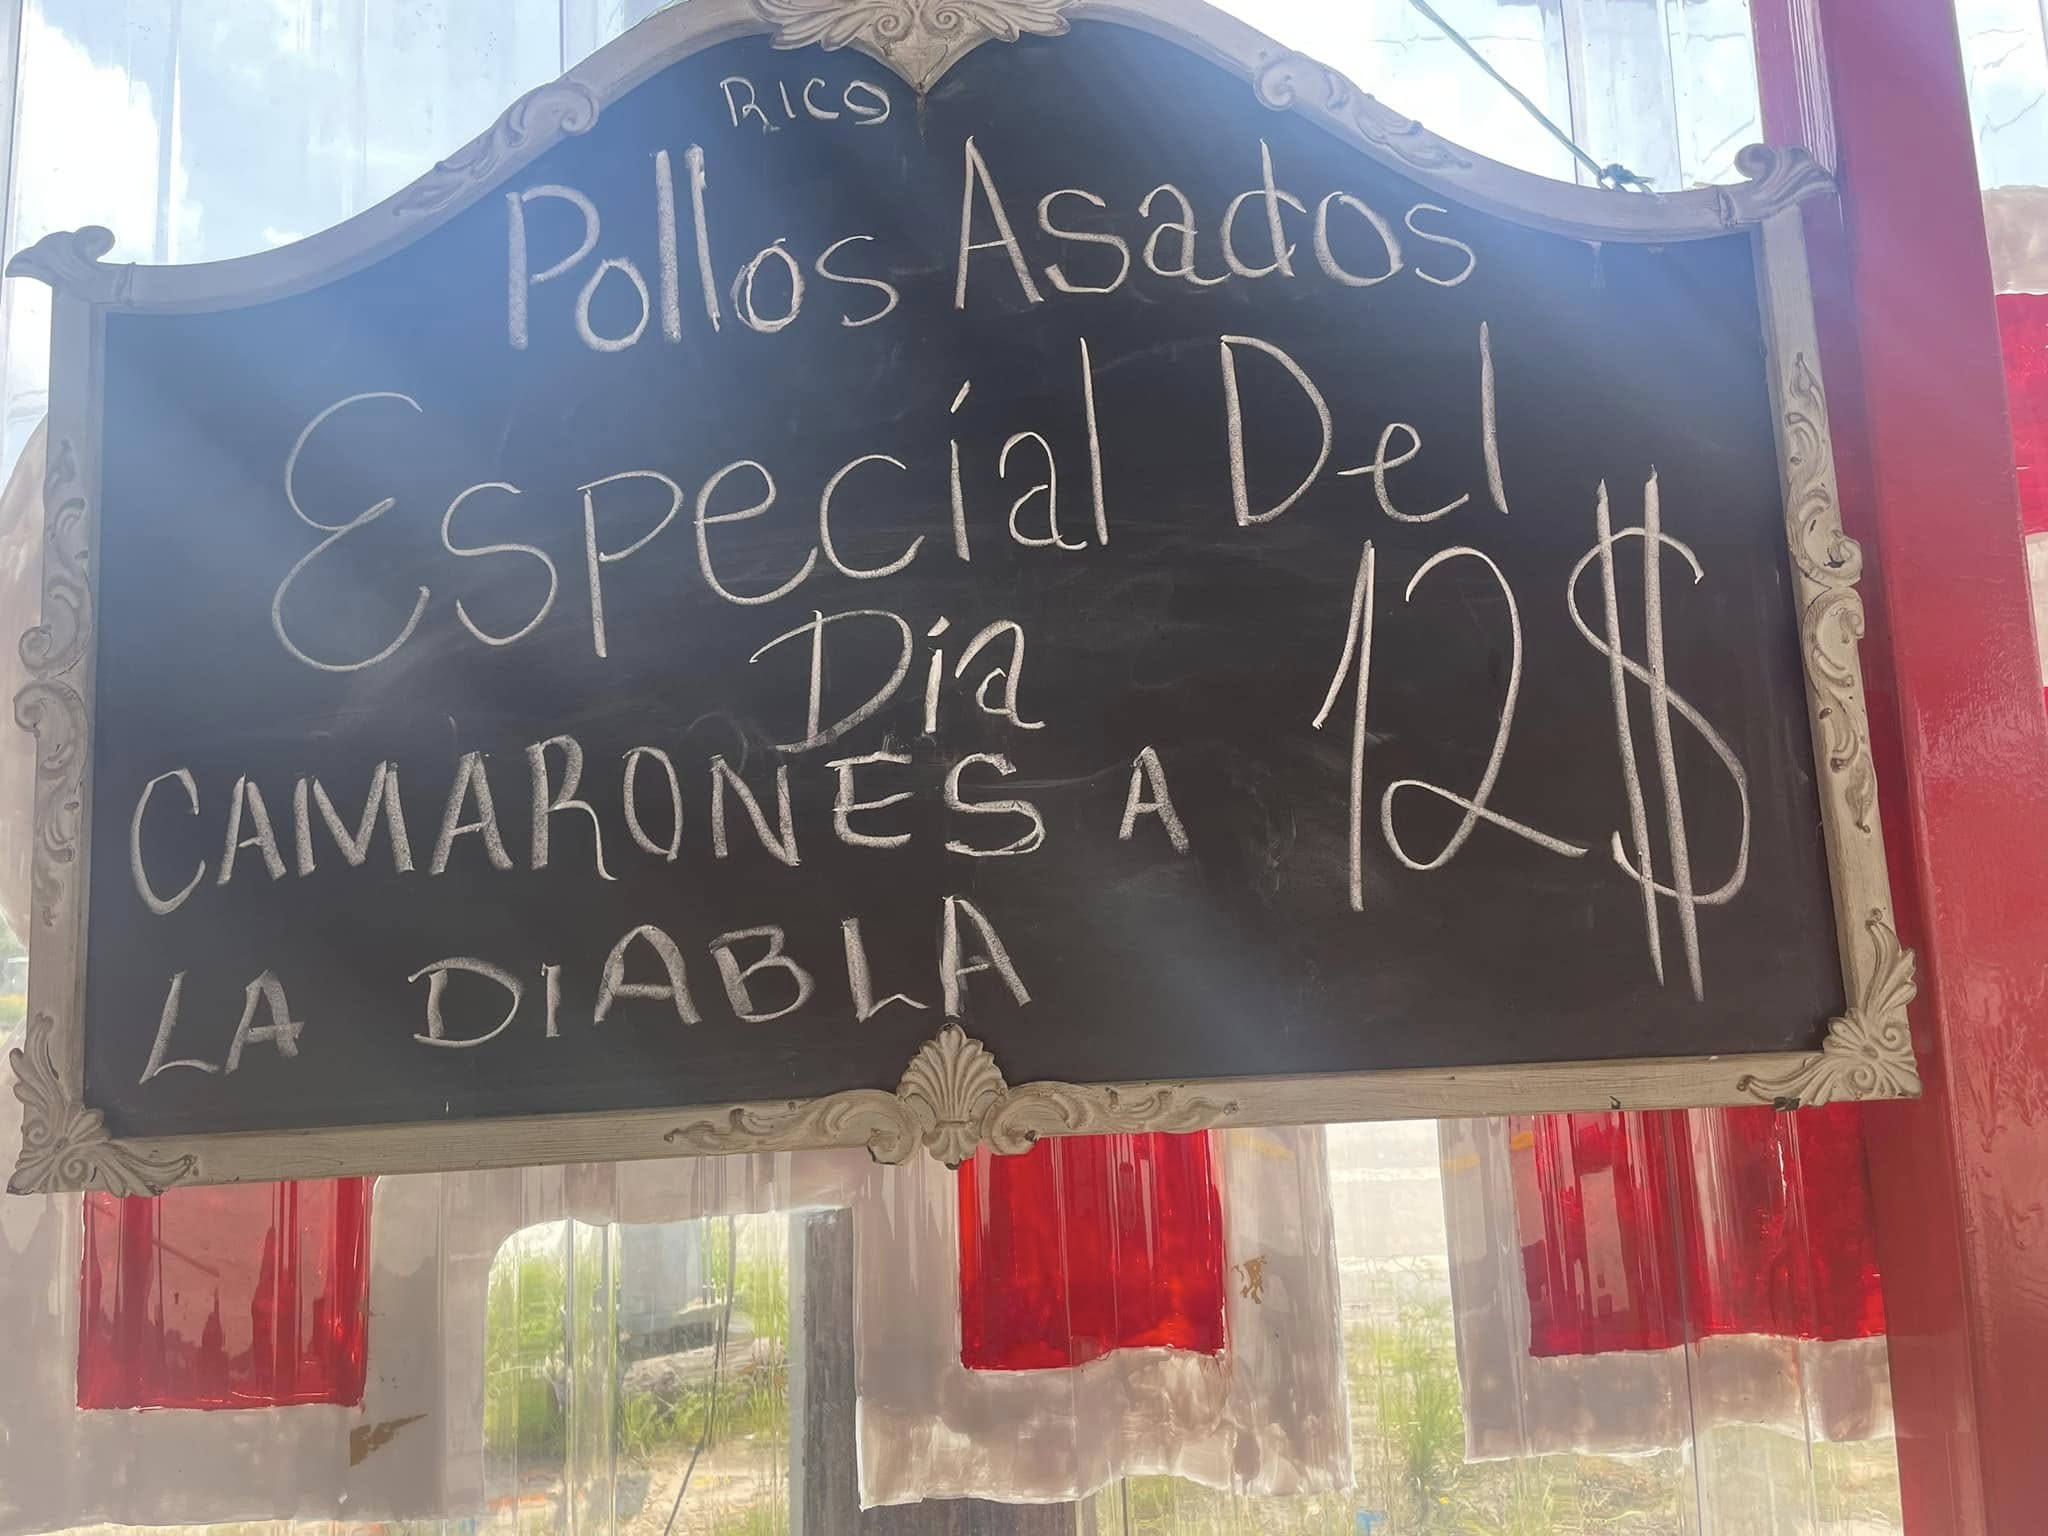 RICO
Pollos Asados
Especial Del
Día
CAMARONES A 12$
LA DIABLA